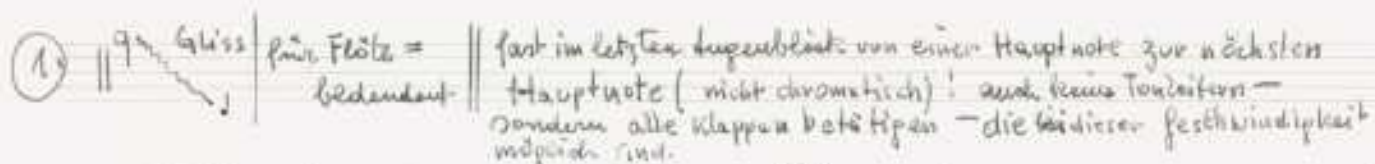 1. Gliss für Flöte = fast im letzten Augenblick von einer Hauptnote zur nächsten
bedeutend Hauptnote (nicht chromatisch)! auch keine Tonleitern –
sondern alle Klappen betätigen – die bei dieser Geschwindigkeit
möglich sind.